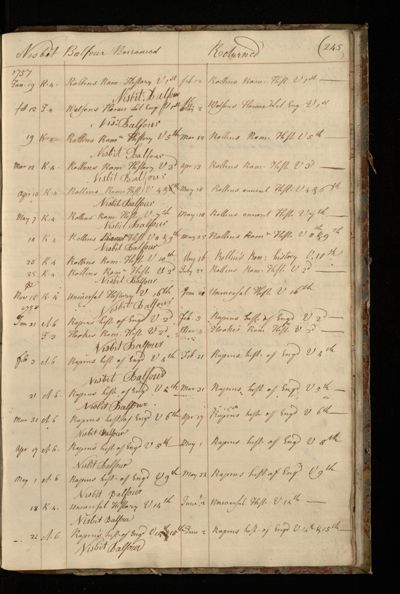 Nisbet Balfour Borrowed Returned (245
1757
Jan: 19 K 4 Rollins Rom. History V 1st Feb 12 Rollins Rom. Hist. V 1st
Nisbit Balfour
Feb 12 Watsons Horace Lat Eng V 1st Watsons Horace Lat Eng V 1st
Nis: Balfour
19 Rollins Romn History V 5th Mar 12 Rollins Rom. Hist. V 5th
Nisbit Balfour
Mar 12 K 4 Rollins Romn History V 3d Apr 12 Rollins Rom. Hist. V 3d
Nisbit Balfour
Apr 12 K 4 Rollins Rom Hist V 4 & 6th May 18 Rollins ancient Hist. V 4 & 6th
Nisbit Balfour
May 7 K 4 Rollins Rom. Hist. V 7th May 18 Rollins ancient Hist. V 7th
Nisbit Balfour
18 K 4 Rollins Hist V 8 & 9th May 25 Rollins Romn Hist. V 8th & 9th
Nisbit Balfour
25 K 4 Rollins Rom: Hist. V 10th Rollins Rom: history V. 10th
25 K 4 Rollins Romn History V 2d July 22 Rollins Rom: Hist. V 2d
Nisbit Balfour
Nov 18 K 4 Universal History V 16th Jan Universal Hist. V 16th
1758
Nisbit Balfour
Jan 21 A 6 Rapins hist of Engd V 2d Feb 3 Rapins hist of Engd V 2d
Hookes Rom Hist. V 2d Hookes Rom Hist V 2d
Nisbit Balfour
Feb 3 A 6 Rapins hist of Engd V 4th Feb 21 Rapins hist. of Engd V 4th
Nisbit Balfour
21 A 6 Rapins hist. of Engd V 5th Mar 31 Rapins hist. of Engd V 5th
Nisbit Balfour
Mar 31 A 6 Rapins hist of Engd V 6th Apr 19 Rapins hist. of Engd V 6th
Nisbit Balfour
Apr 19 A 6 Rapins hist. of Engd V 8th May 1 Rapins hist. of Engd V 8th
Nisbit Balfour
May 1 A 6 Rapins hist. of Engd V 9th May 22 Rapins hist of Engd V 9th
Nisbit Balfour
18 K 4 Universal History V 14th June 2 Universal Hist. V 14th
Nisbit Balfour
22 A 6 Rapins hist. of Engd & 15th June 2 Rapins hist. of Engd & 15th
Nisbit Balfour